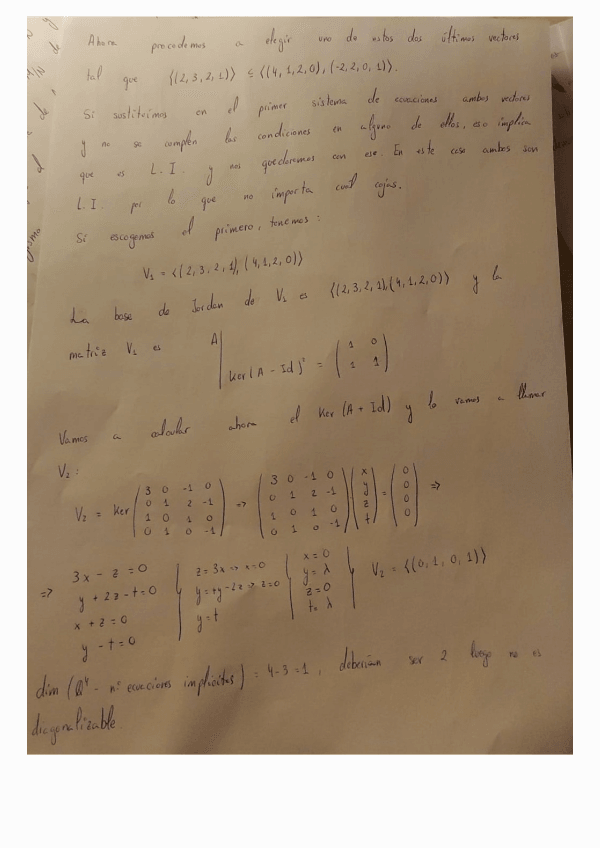 Ahora procedemos a elegir uno de estos dos últimos vectores
tal que ⟨(2,3,2,1)⟩ ≤ ⟨(4,1,2,0),(-2,2,0,1)⟩.
Si sustituimos en el primer sistema de ecuaciones ambos vectores
y no se cumplen las condiciones en alguno de ellos, eso implica
que es L.I. y nos quedaremos con ese. En este caso ambos son
L.I. por lo que no importa cuál cojas.
Si escogemos el primero, tenemos:
V₁ = ⟨(2,3,2,1),(4,1,2,0)⟩
La base de Jordan de V₁ es ⟨(2,3,2,1),(4,1,2,0)⟩ y la
matriz V₁ es A| ker(A-Id)² = (1 0
1 1)
Vamos a calcular ahora el Ker(A+Id) y lo vamos a llamar
V₂:
V₂ = Ker (3 0 -1 0 ⇒ (3 0 -1 0 (x (0
0 1 2 -1 0 1 2 -1 y 0
1 0 1 0 1 0 1 0 z = 0 ⇒
0 1 0 -1) 0 1 0 -1) t) 0)
⇒ 3x - z = 0 z = 3x ⇒ x=0 x=0 V₂ = ⟨(0,1,0,1)⟩
y + 2z - t = 0 y=+y-2z ⇒ z=0 y=λ
x + z = 0 y=t z=0
y - t = 0 t=λ
dim (ℚ⁴ - nº ecuaciones implícitas) = 4-3=1, deberían ser 2 luego no es
diagonalizable.